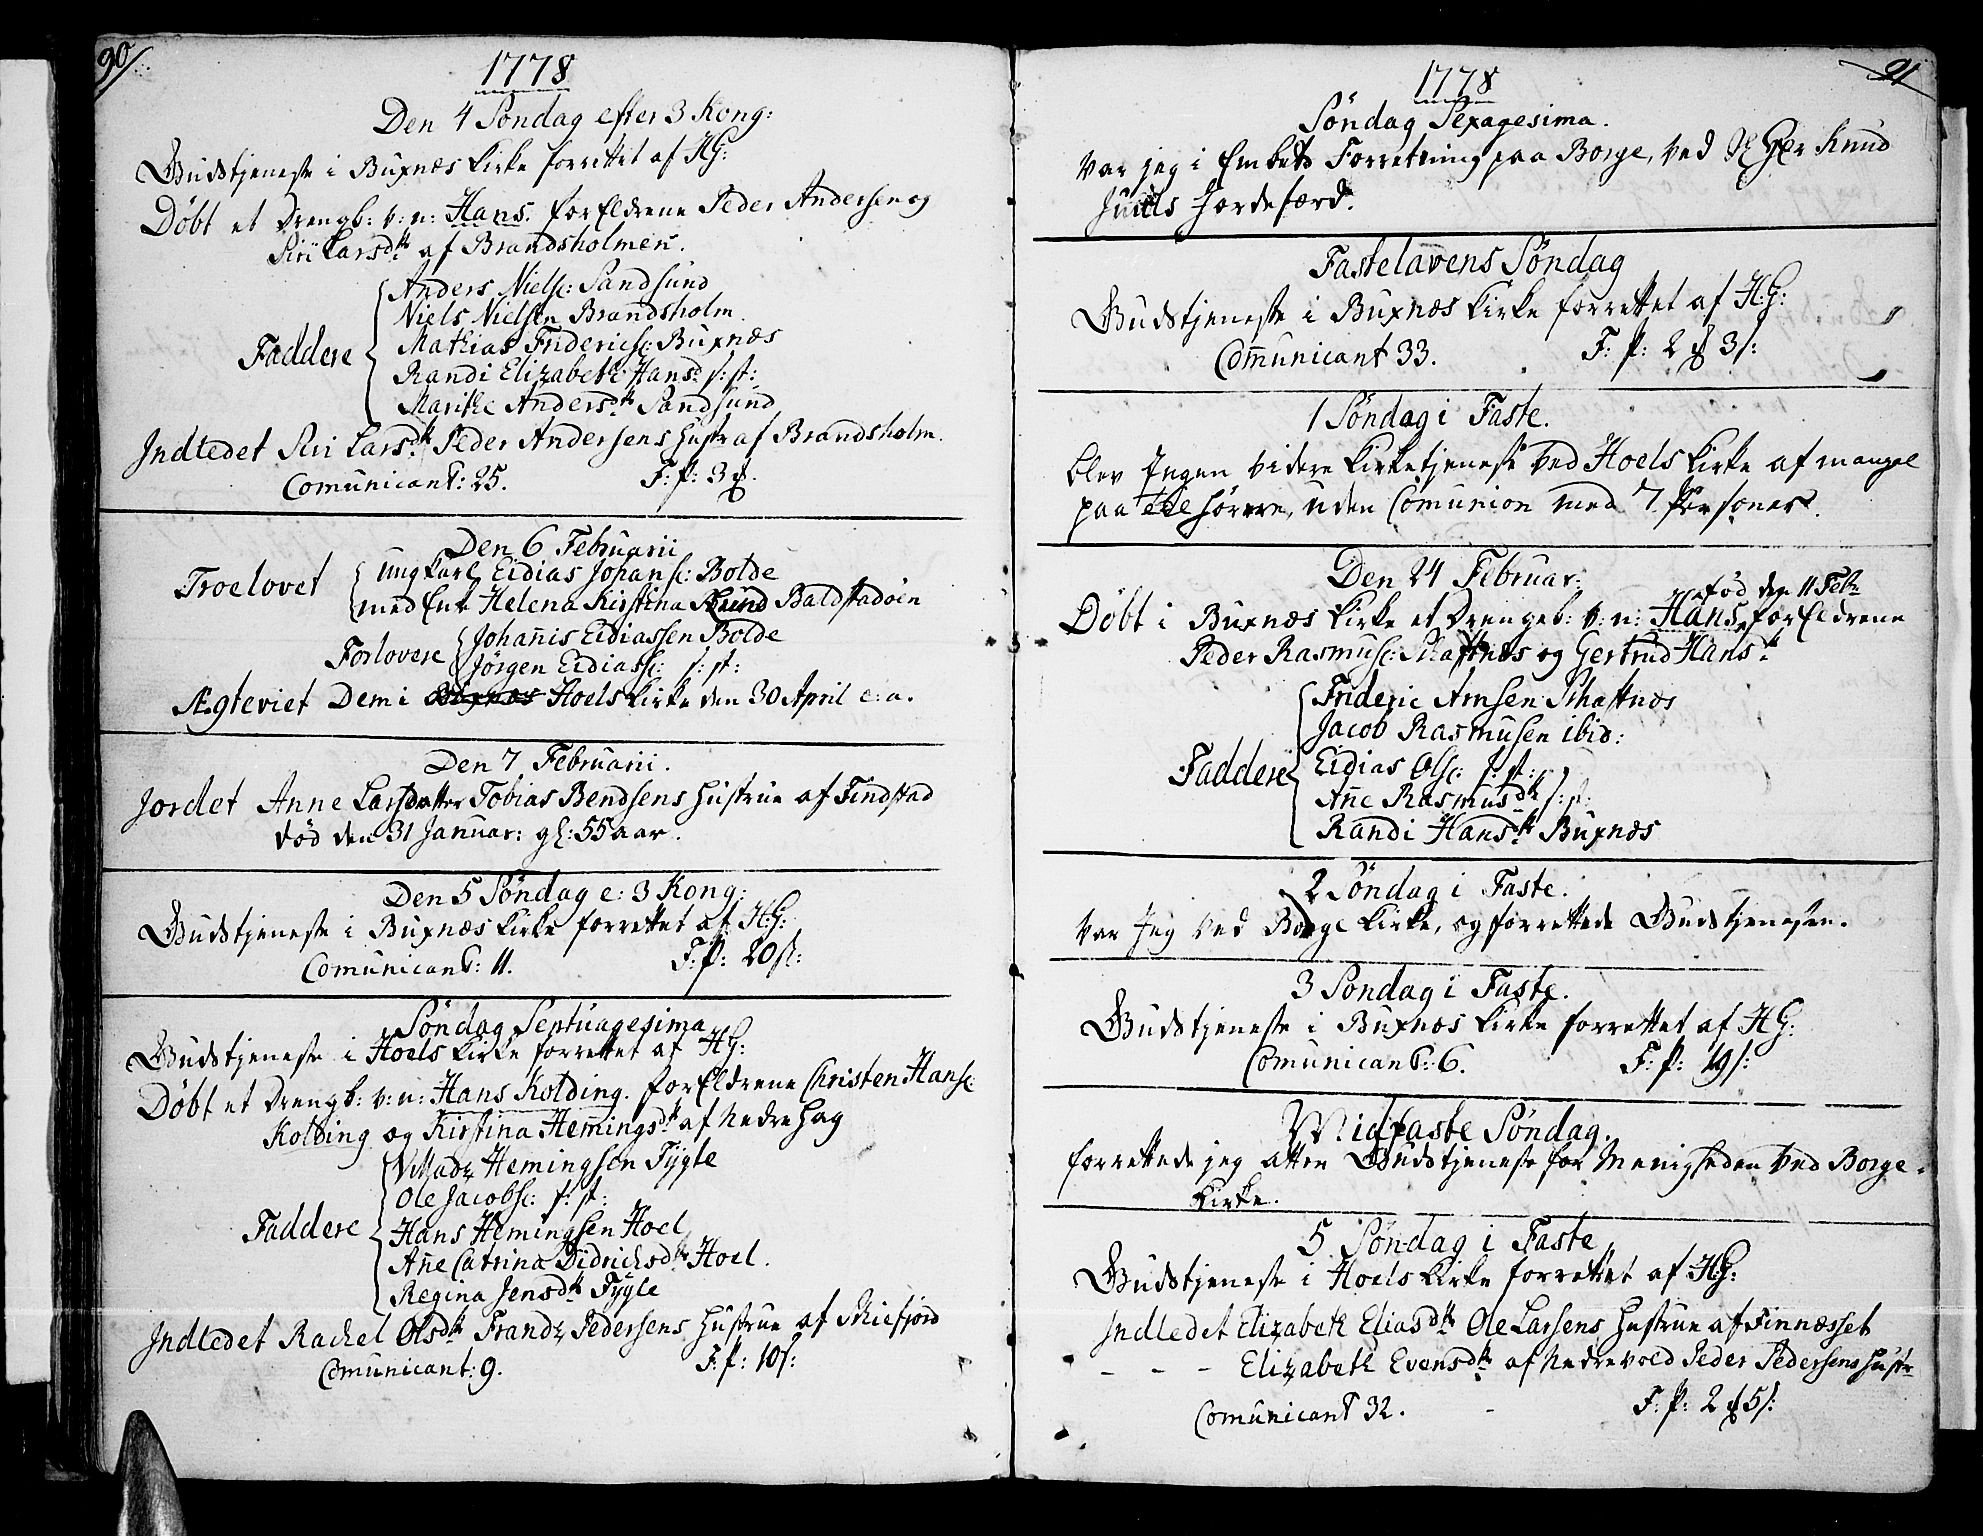 90/.
1778
Den 4 Søndag efter 3 Kong:
Gudstjeneste i Buxnæs Kirke forrettet af HG:
Døbt et Drengb: v: n: Hans. forEldrene Peder Andersen og
Siri Larsdtr af Brandsholmen.
Anders Nielse: Sandsund
Niels Nielsen Brandsholm.
Faddere
Mathias Friderichse: Buxnæs
Randi Elizabeth Hansd: s: st:
Marithe Andersdtr Sandsund
Indledet Siri Larsdtr Peder Andersens Hustr af Brandsholm.
Comunicant: 25. F: P: 3
Den 6 Februarii
Troelovet
ungkarl Eidias Johanse: Bolde
med Enk Helena Kirstina Baldstadøen
Forlovere
Johannis Eidiassen Bolde
Jörgen Eidiasse: s: st:
Ægteviet Dem i Buxnæs Hoels Kirke den 30 April e: a.
Den 7 Februarii.
Jordet Anne Larsdatter Tobias Bendsens Hustrue af Findstad
død den 31 Januar: gl: 55 aar.
Den 5 Søndag e: 3 Kong:
Gudstjeneste i Buxnæs Kirke forrettet af H:G:
Comunicant: 11. F: P: 20 s:
Søndag Septuagesima
Gudstjeneste i Hoels Kirke forrettet af HG:
Døbt et Drengb: v: n: Hans Kolding. forEldrene Christen Hanse:
Kolding og Kirstina Hemingsdtr af Nedre Hag
Villadz Hemingsen Fygle
Ole Jacobse: s: st:
Faddere
Hans Hemingsen Hoel
Anne Catrina Didrichsdtr Hoel.
Regina Jensdtr Fygle
Indledet Rachel Olsdtr Frandz Pedersens Hustrue af Skiefjord
Comunicant: 9. F: P: 10 s:
91
1778
Søndag Sexagesima.
Var jeg i Embeds Forretning paa Borge, ved Sl Hr Knud
Juuls Jordefærd.
Fastelavens Søndag
Gudstjeneste i Buxnæs Kirke forrettet af H:G:
Comunicant 33. F: P: 2 3 s:
1 Søndag i Faste.
blev Ingen videre Kirketjeneste ved Hoels Kirke af mangel
paa tilhörere, uden Comunion med 7 Personer.
Den 24 Februar:
fød den 11 Feb:
Døbt i Buxnæs Kirke et Drengeb: v: n: Hans, forEldrene
Peder Rasmuse: Skaftnæs og Gertrud Hansdtr
Frideric Arnsen Skaftnæs
Jacob Rasmusen ibid:
Faddere
Eidias Olse: s: st:
Anne Rasmusdtr s: st:
Randi Hansdtr Buxnæs
2 Søndag i Faste.
var Jeg ved Borge Kirke, og forrettede Gudstjenesten.
3 Søndag i Faste.
Gudstjeneste i Buxnæs Kirke forrettet af HG:
Comunicant: 6. F: P: 19 s:
Midfaste Søndag.
forrettede jeg atter Gudstjeneste for Menigheden ved Borge
Kirke.
5 Søndag i Faste
Gudstjeneste i Hoels Kirke forrettet af HG:
Indledet Elizabeth Eliasdtr Ole Larsens Hustrue af Finnæsset
- - - Elizabeth Evensdtr af Nedrevold Peder Pedersens Hustr
Comunicant 32. - F: P: 2 5 s: